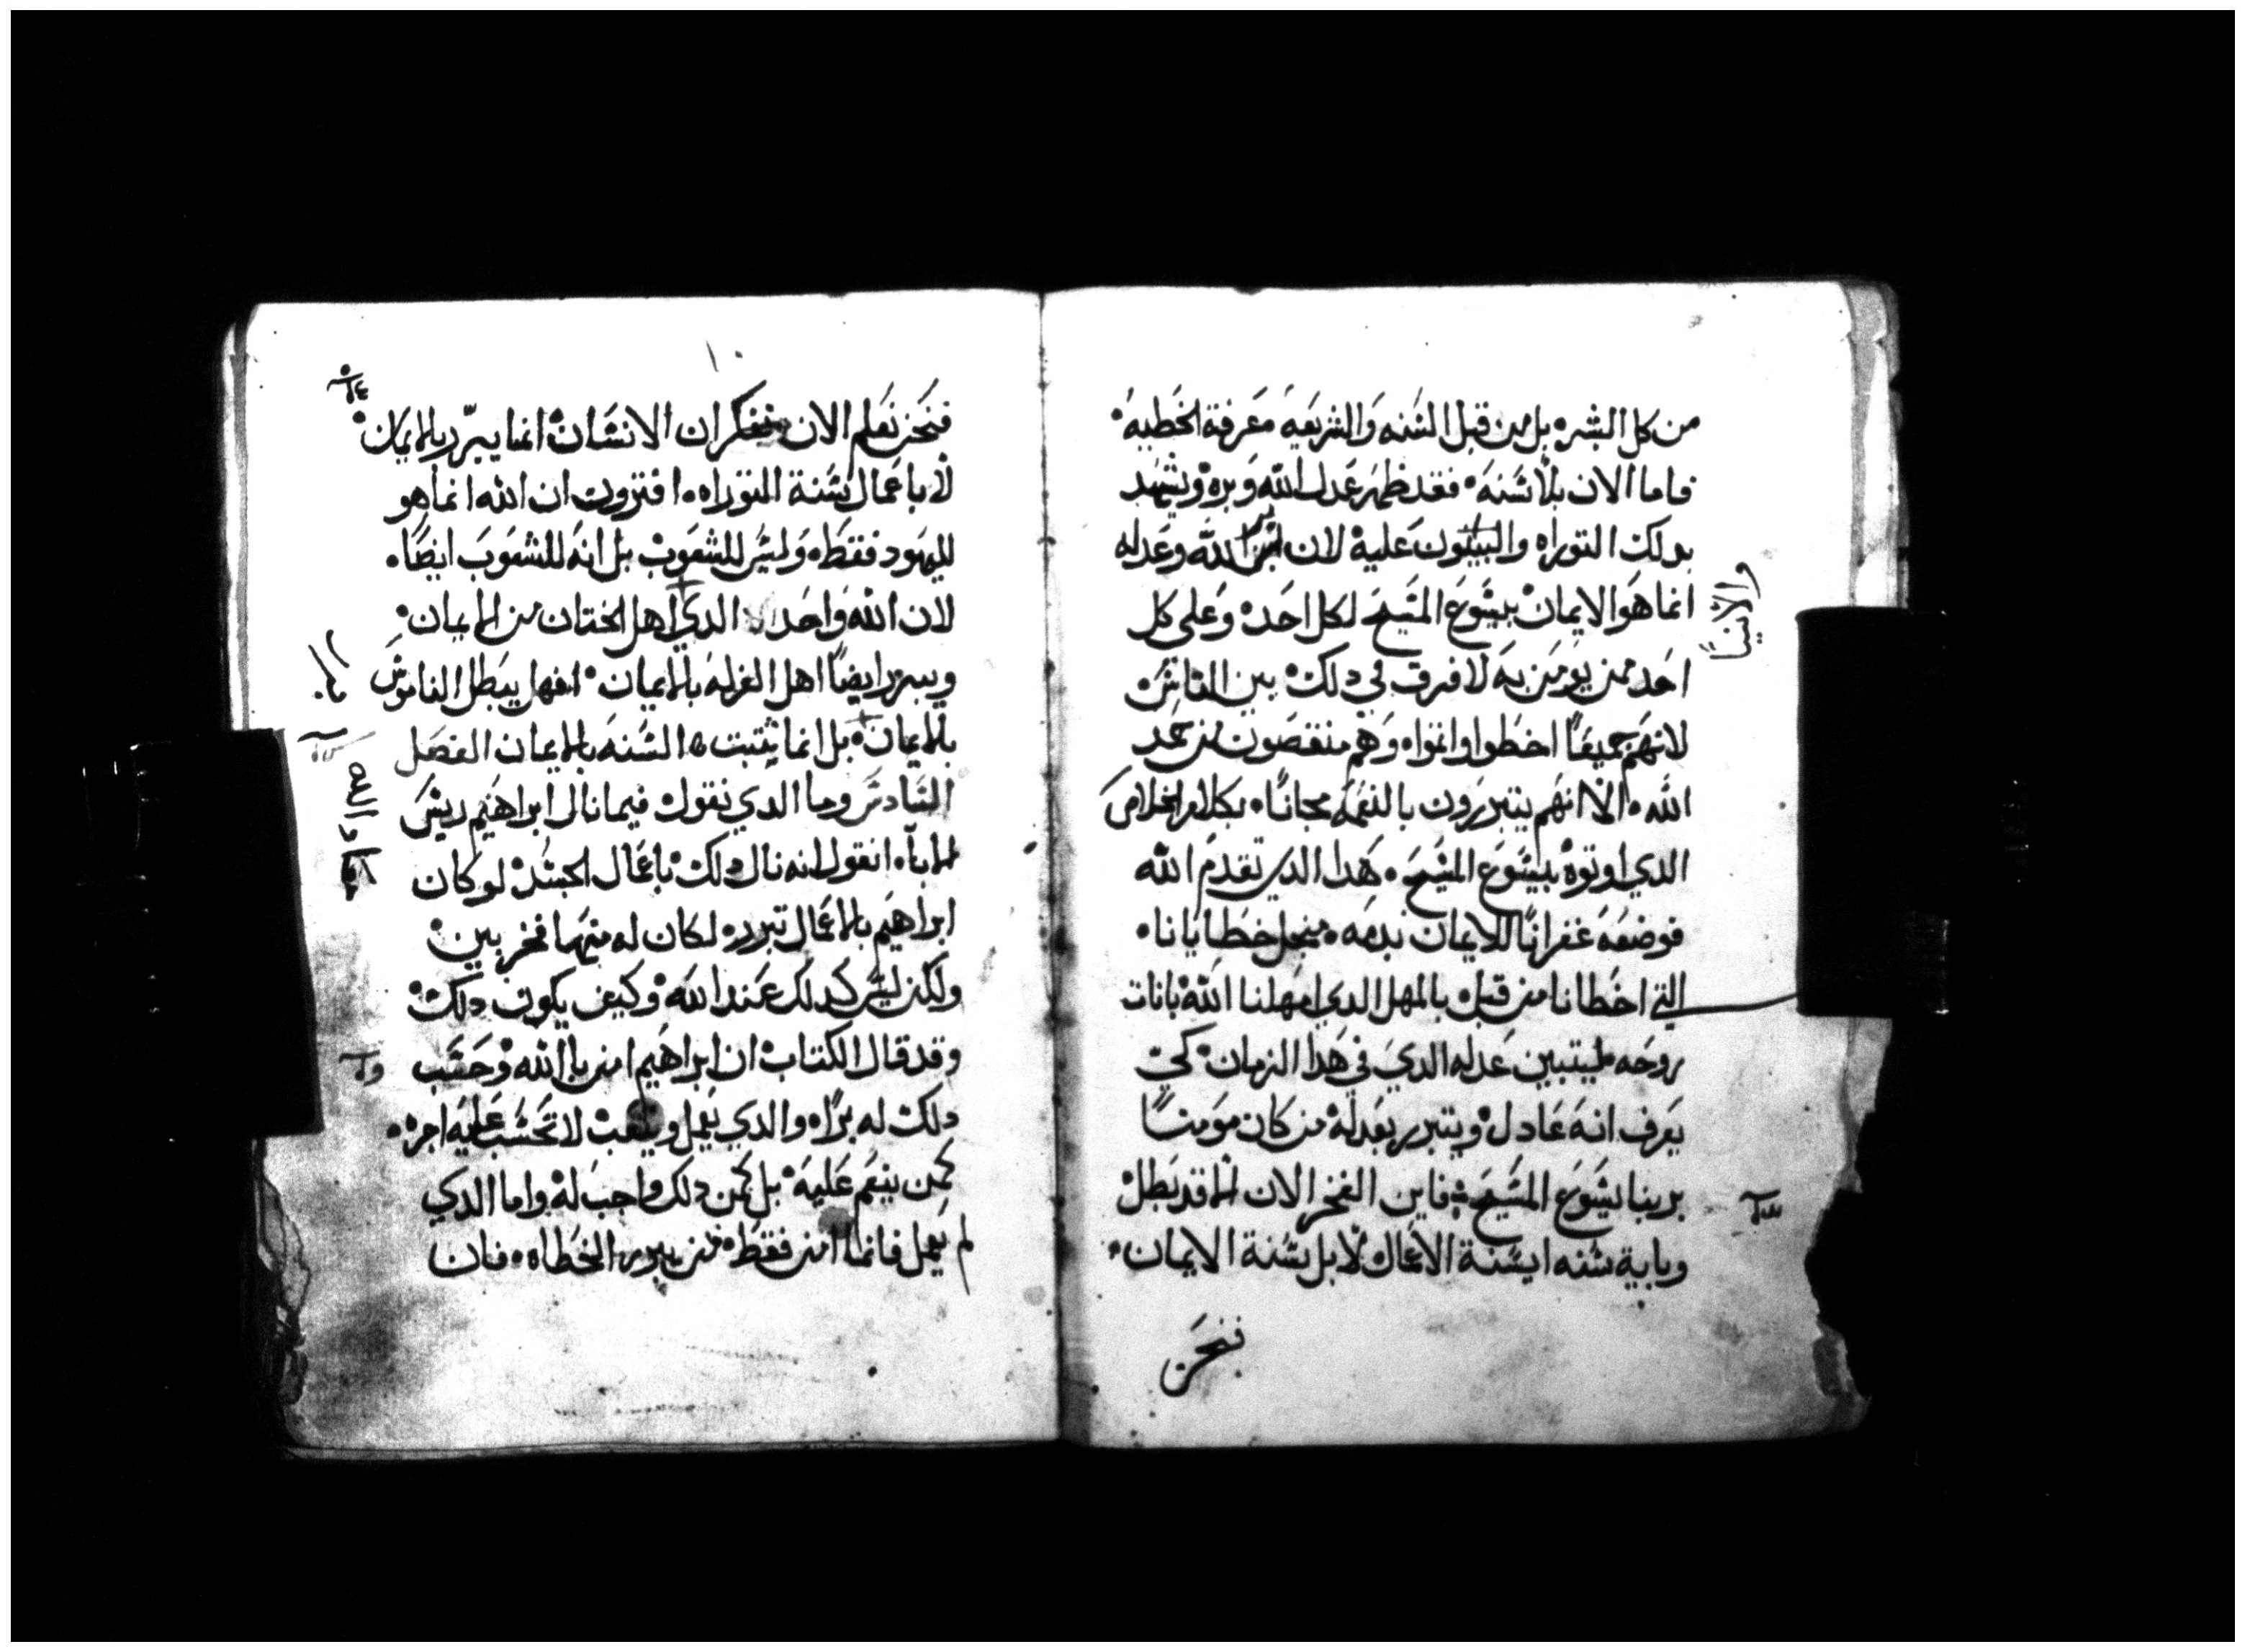 من كل البشر بل من قبل السنه والشريعه معرفة الخطيه
فاما الان بلا سنه فقد ظهر عدل الله وبره وتشهد
بدلك التوراه والنبيون عليه لان بر الله وعدله
انما هو الايمان بيسوع المسيح لكل احد وعلى كل
والانبيا
احد ممن يومن به لا فرق في دلك بين الناس
لانهم جميعًا اخطوا واثموا وهم منقصون من حمد
الله الا انهم يتبررون بالنعمه مجانًا بكلام الخلاص
الدي اوتوه بيسوع المسيح هدا الدي تقدم الله
فوضعه غفرانًا للايمان بدمه منجل خطايانا
التي اخطانا من قبل بالمهل الدي امهلنا الله بانات
روحه ليتبين عدله الدي في هدا الزمان كي
يعرف انه عادل ويتبرر بعدله من كان مومنًا
بربنا يسوع المسيح فاين الفخر الان الا قد بطل
وباية سنه ابسنة الاعمال لا بل بسنة الايمان
فنحن
١٠
فنحن نعلم الان ان الانسان انما يبرر بالايمان
لا باعمال سنة التوراه افترون ان الله انما هو
لليهود فقط وليس للشعوب بل انه للشعوب ايضًا
لان الله واحد الدي اهل الختان من الايمان
ويبرر ايضًا اهل الغرله بالايمان افهل يبطل الناموس
بالايمان بل انما يثبت السنه بالايمان الفصل
السادس وما الدي نقول فيما نال ابراهيم ريس
الابآ انقول انه نال دلك باعمال الجسد لو كان
ابراهيم بالاعمال تبرر لكان له منهما فخر بين
ولكن ليس كدلك عند الله وكيف يكون دلك
وقد قال الكتاب ان ابراهيم امن بالله وحسب
دلك له برًا والدي يعمل ويتعب لا تحسب عليه اجره
كمن ينعم عليه بل كمن دلك واجب له واما الدي
لم يعمل فانما امن فقط بمن يبرر الخطاه فان